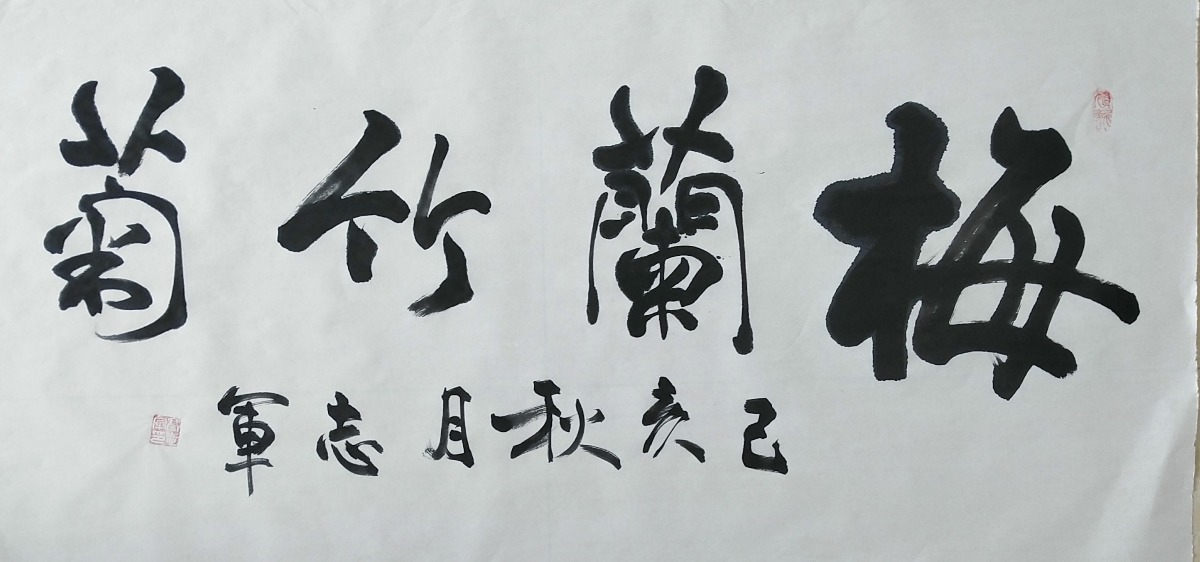 梅蘭竹菊
己亥秋月志軍